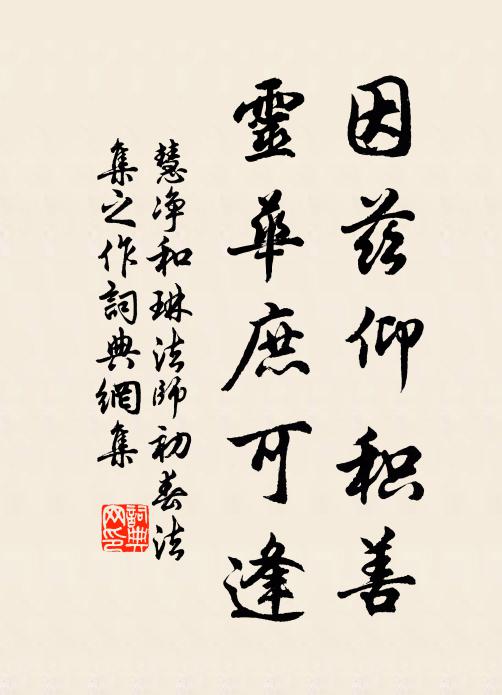 因茲仰积善
靈華庶可逢
慧净和琳法師初春法
集之作詞典網集
詞典
网印